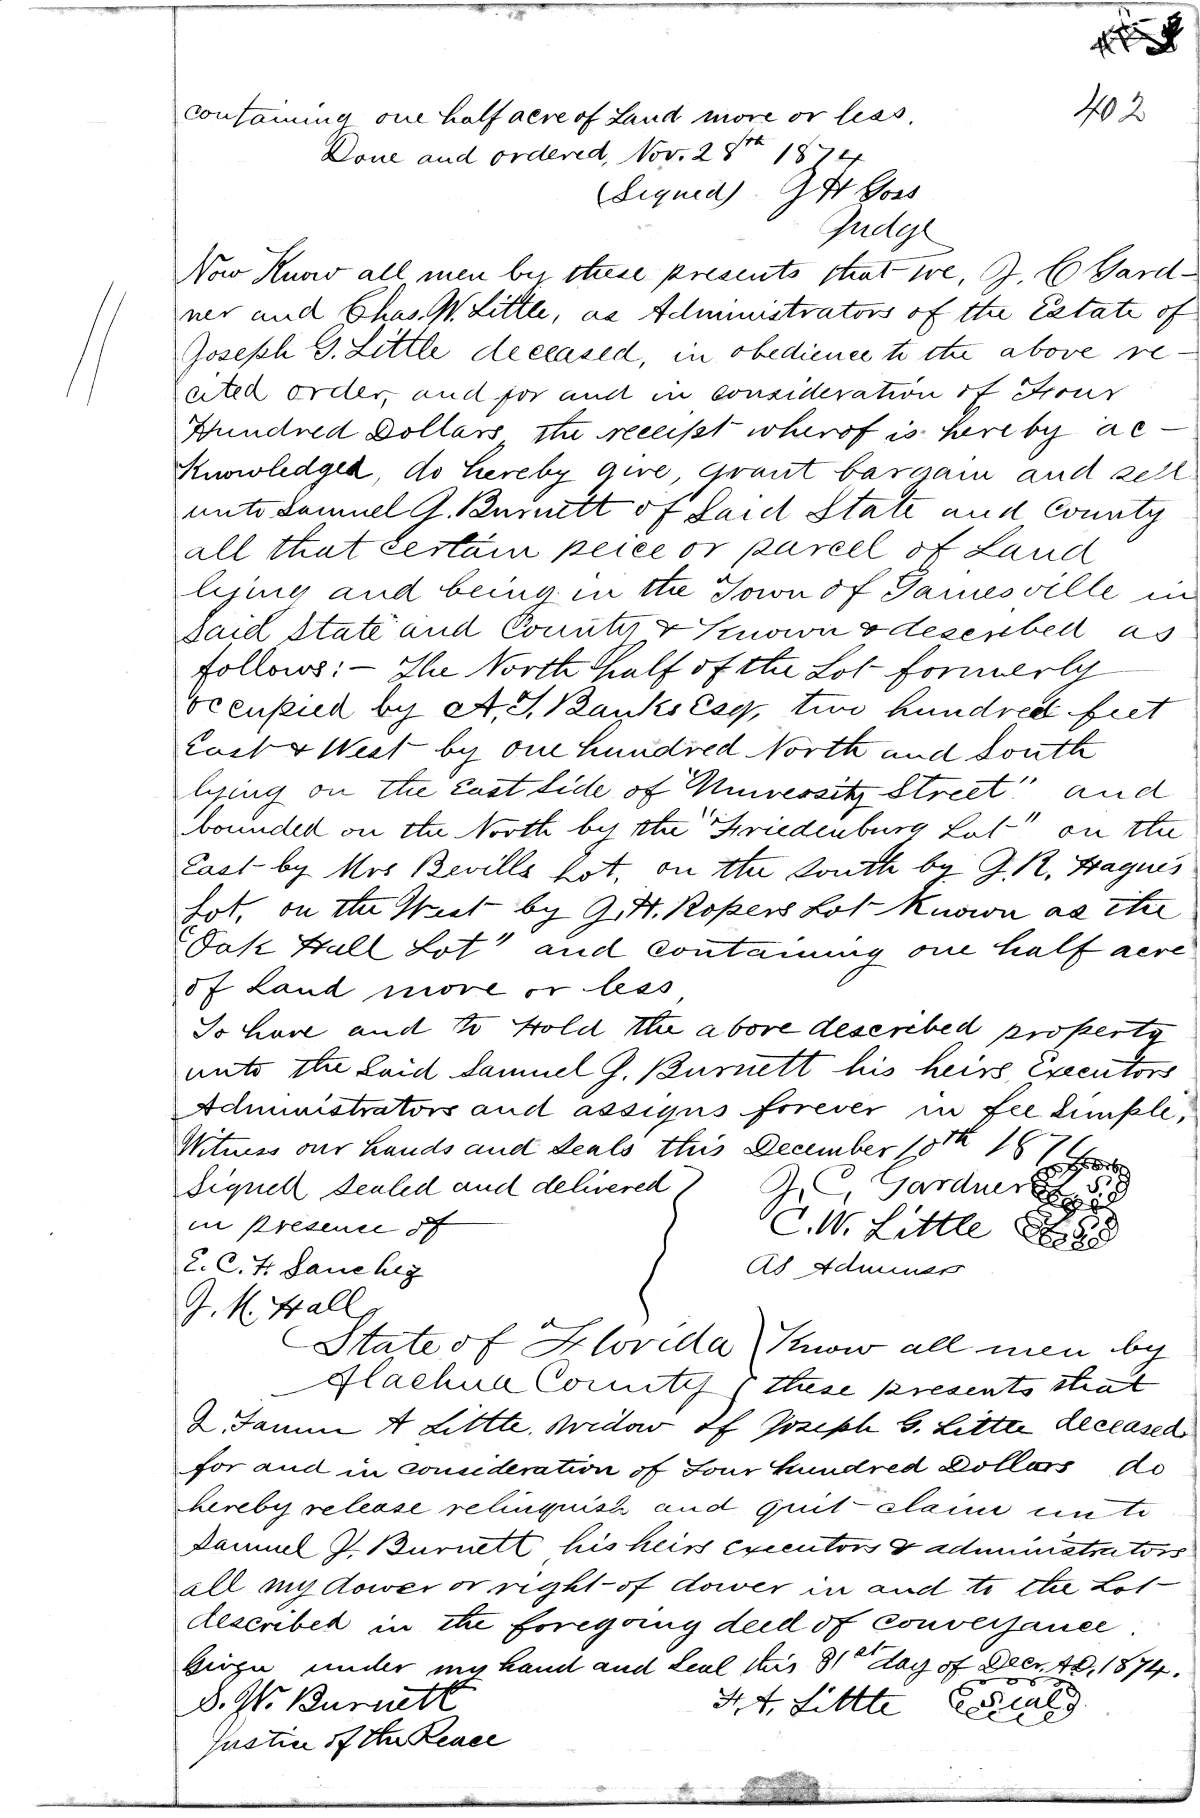 402
containing one half acre of Land more or less.
Done and ordered, Nov. 28th 1874
(Signed) J H Goss
Judge
Now Know all men by these presents that we, J. C Gard-
ner and Chas. W. Little, as Administrators of the Estate of
Joseph G. Little deceased, in obedience to the above re-
cited order, and for and in consideration of Four
Hundred Dollars, the receipt wherof is hereby ac-
knowledged, do hereby give, grant bargain and sell
unto Samuel J. Burnett of Said State and County
all that certain peice or parcel of Land
lying and being in the Town of Gainesville in
Said State and County & Known & described as
follows:- The North half of the Lot formerly
occupied by A. T. Banks Esqr, two hundred feet
East & West by one hundred North and South
lying on the East Side of "University Street" and
bounded on the North by the "Friedenburg Lot" on the
East by Mrs Bevills Lot, on the South by J. R. Hagues
Lot, on the West by J. H. Ropers Lot Known as the
"Oak Hall Lot" and containing one half acre
of Land more or less,
To have and to Hold the above described property
unto the Said Samuel J. Burnett his heirs, Executors
Administrators and assigns forever in fee Simple.
Witness our hands and Seals this December 10th 1874
Signed Sealed and delivered J. C. Gardner L. S.
in presence of C. W. Little L. S.
E. C. F. Sanchez as Adminsrs
J. M. Hall
State of Florida Know all men by
Alachua County these presents that
I, Fannie A Little, widow of Joseph G. Little deceased
for and in consideration of Four hundred Dollars do
hereby release relinquish and quit claim unto
Samuel J. Burnett, his heirs executors & administrators
all my dower or right of dower in and to the Lot
described in the foregoing deed of conveyance.
Given under my hand and Seal this 31st day of Decr. A.D. 1874.
S. W. Burnett F. A. Little Seal
Justice of the Peace